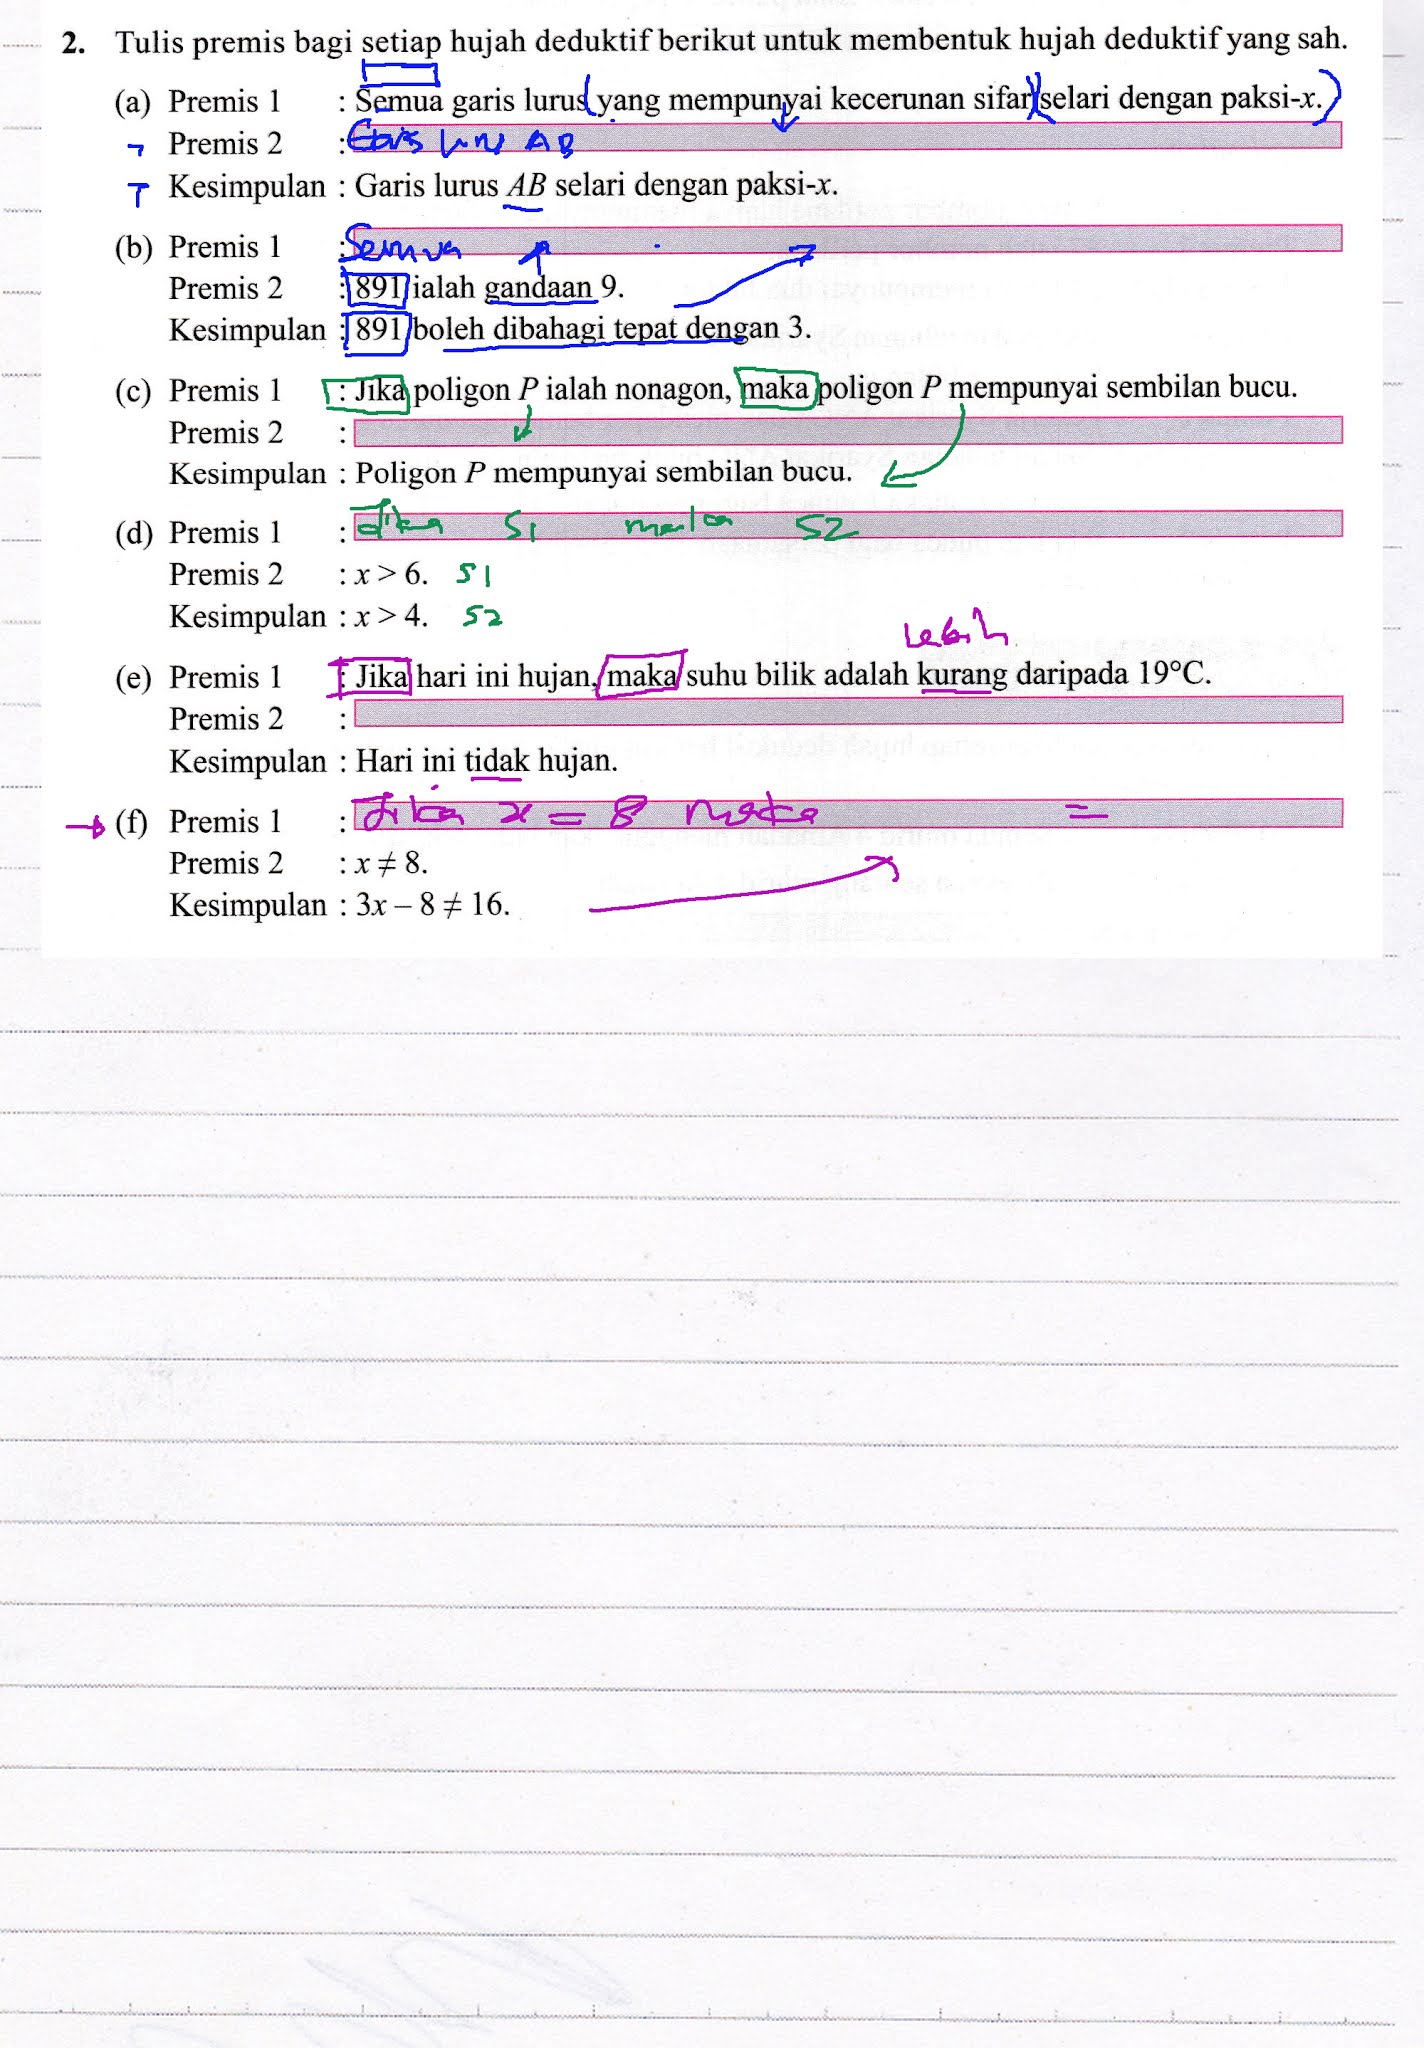 2. Tulis premis bagi setiap hujah deduktif berikut untuk membentuk hujah deduktif yang sah.
(a) Premis 1 : Semua garis lurus yang mempunyai kecerunan sifar selari dengan paksi-x.
Premis 2 : Garis lurus AB
Kesimpulan : Garis lurus AB selari dengan paksi-x.
(b) Premis 1 : Semua
Premis 2 : 891 ialah gandaan 9.
Kesimpulan : 891 boleh dibahagi tepat dengan 3.
(c) Premis 1 : Jika poligon P ialah nonagon, maka poligon P mempunyai sembilan bucu.
Premis 2 :
Kesimpulan : Poligon P mempunyai sembilan bucu.
(d) Premis 1 : Jika S1 maka S2
Premis 2 : x > 6. S1
Kesimpulan : x > 4. S2
lebih
(e) Premis 1 : Jika hari ini hujan, maka suhu bilik adalah kurang daripada 19°C.
Premis 2 :
Kesimpulan : Hari ini tidak hujan.
(f) Premis 1 : Jika x = 8 maka =
Premis 2 : x ≠ 8.
Kesimpulan : 3x – 8 ≠ 16.